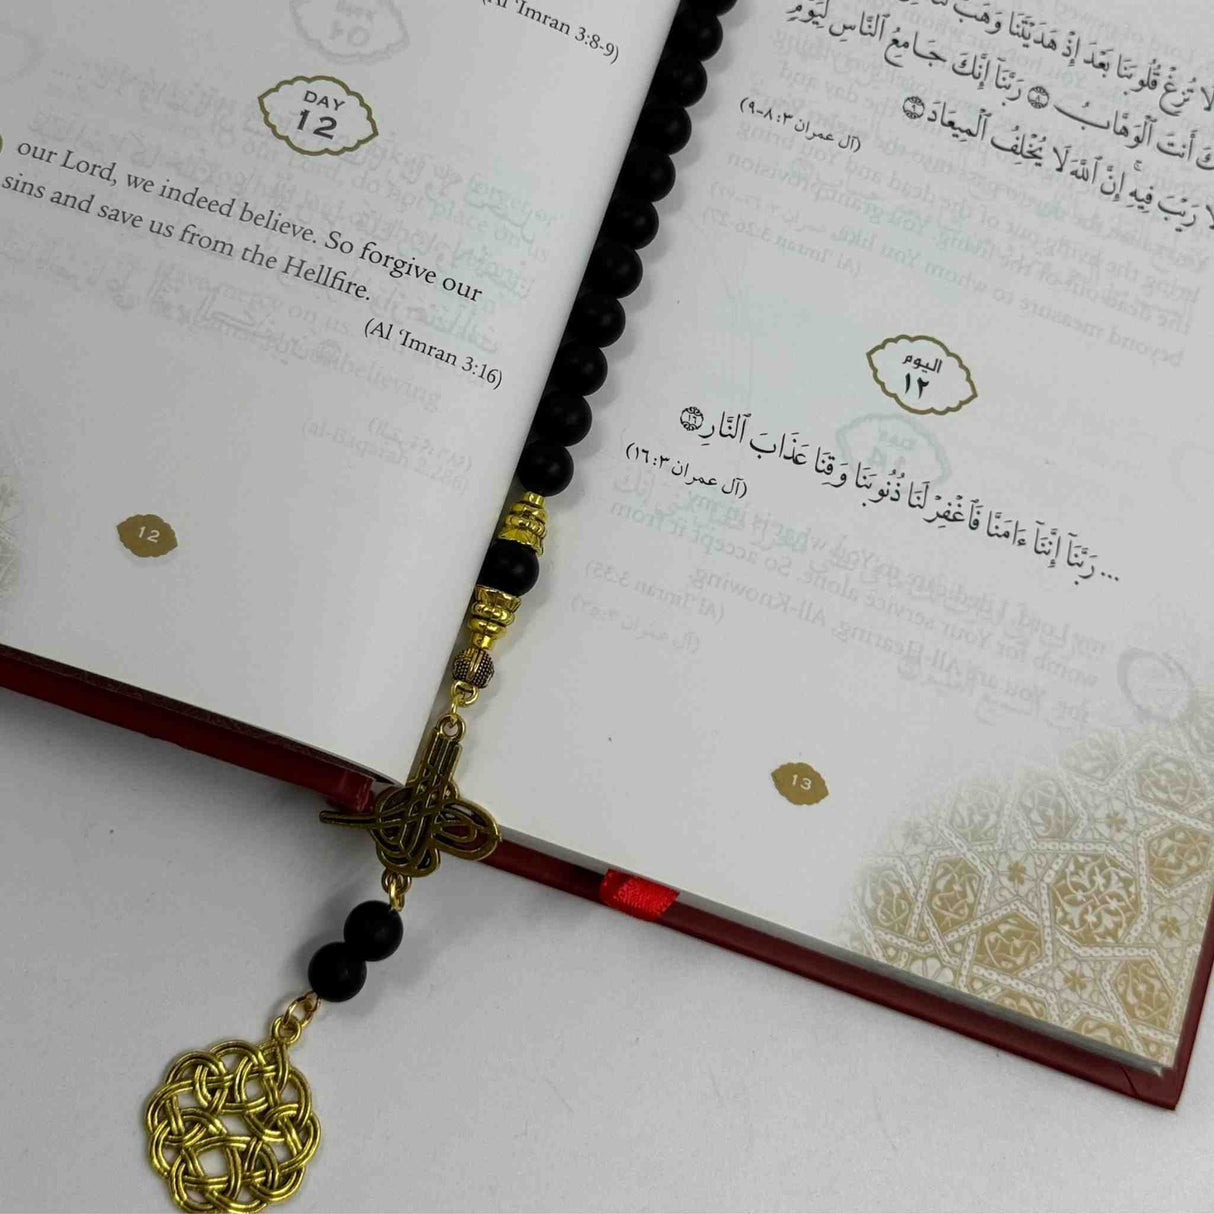 (Al ‘Imran 3:8-9)
DAY
12
our Lord, we indeed believe. So forgive our
sins and save us from the Hellfire.
(Al ‘Imran 3:16)
12
لَا تُزِغْ قُلُوبَنَا بَعْدَ إِذْ هَدَيْتَنَا وَهَبْ
أَنتَ ٱلْوَهَّابُ ٨ رَبَّنَآ إِنَّكَ جَامِعُ ٱلنَّاسِ لِيَوْمٍ
رَيْبَ فِيهِ ۚ إِنَّ ٱللَّهَ لَا يُخْلِفُ ٱلْمِيعَادَ ٩
(آل عمران ٣: ٨-٩)
اليوم
١٢
... رَبَّنَآ إِنَّنَآ ءَامَنَّا فَٱغْفِرْ لَنَا ذُنُوبَنَا وَقِنَا عَذَابَ ٱلنَّارِ ١٦
(آل عمران ٣: ١٦)
13